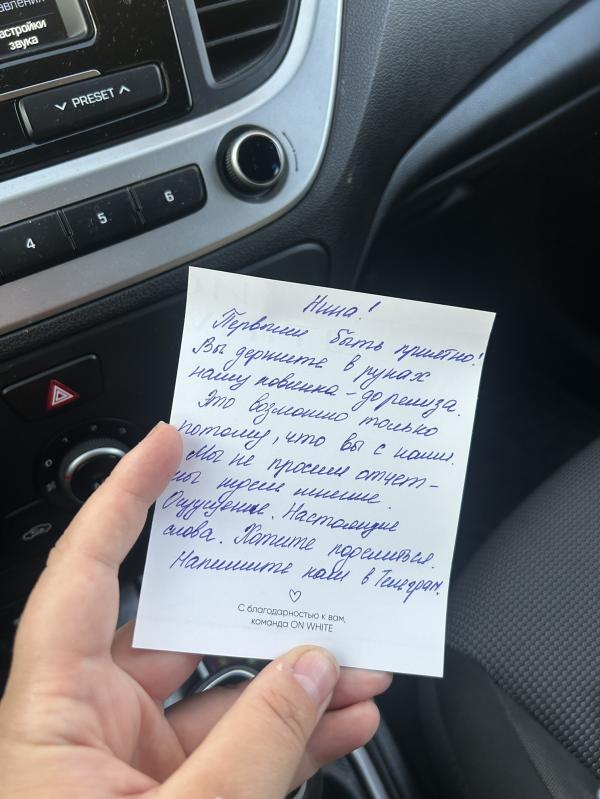 настройки
звука
PRESET
4 5 6
Нина!
Первыми быть приятно!
Вы держите в руках
нашу новинка - до релиза.
Это возможно только
потому, что вы с нами.
Мы не просим отчет -
мы ждем мнение.
Ощущение. Настоящие
слова. Хотите поделиться.
Напишите нам в Телеграм.
С благодарностью к вам,
команда ON WHITE